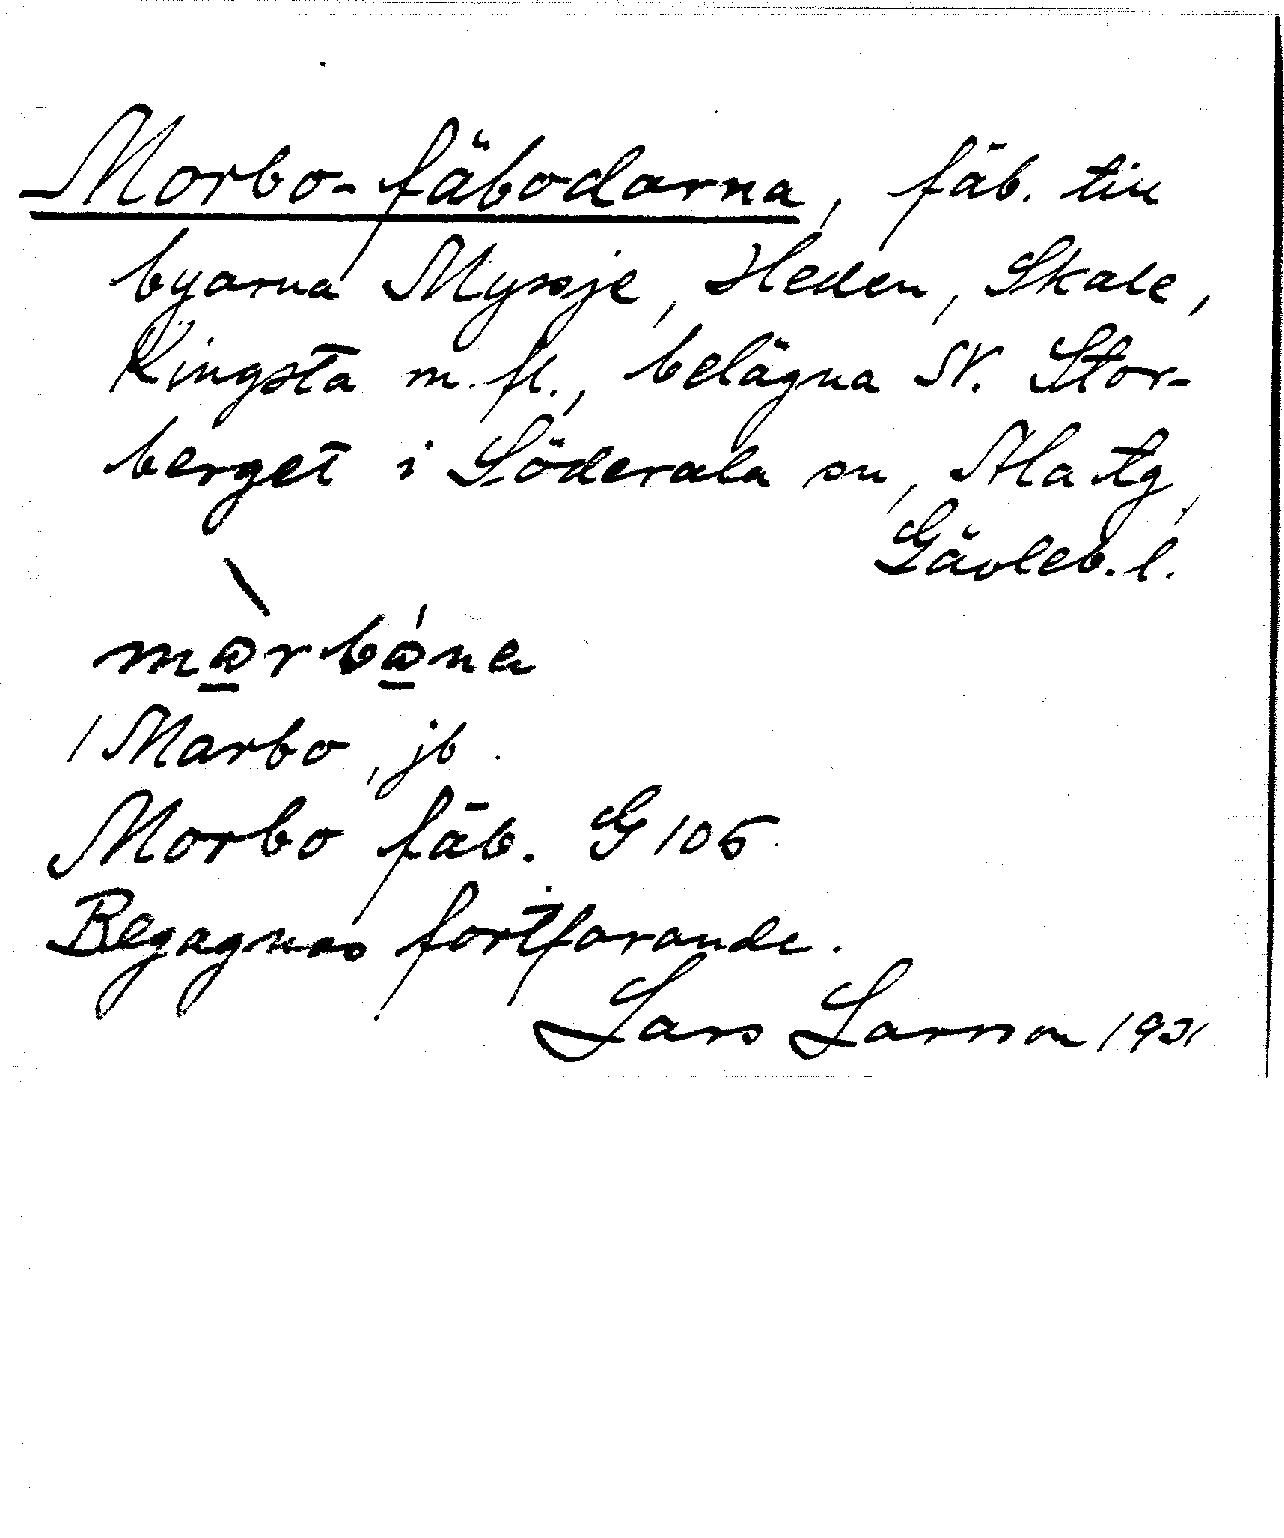 Morbo-fäbodarna, fäb. till
byarna Myssje, Heden, Skale,
Kingsta m. fl., belägna N. Stor-
berget i Söderala sn, Ala tg,
Gävleb. l.
Marbo, jb
Morbo fäb. G 105
Begagnas fortfarande.
Lars Larsson 1931